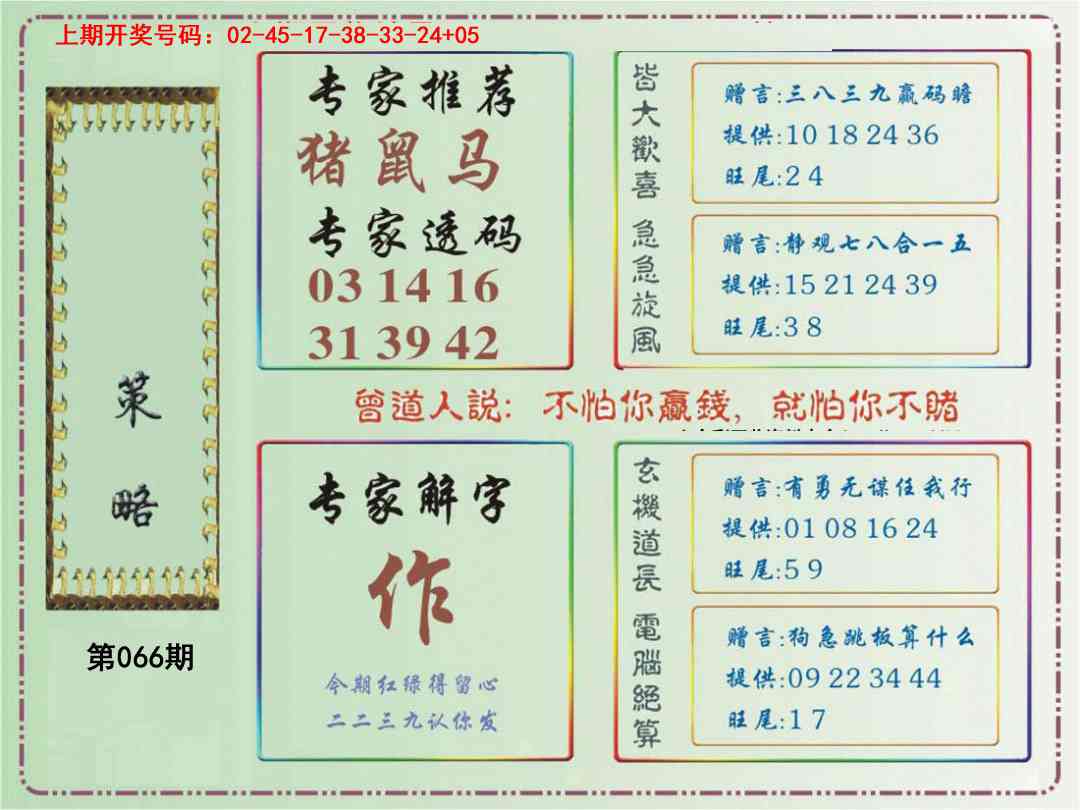 上期开奖号码：02-45-17-38-33-24+05
策略
第066期
专家推荐
猪鼠马
专家透码
03 14 16
31 39 42
皆大歡喜
赠言:三八三九赢码瞻
提供:10 18 24 36
旺尾:2 4
急急旋风
赠言:静观七八合一五
提供:15 21 24 39
旺尾:3 8
曾道人説：不怕你贏錢，就怕你不賭
专家解字
作
今期红绿得留心
二二三九认你发
玄機道長
赠言:有勇无谋任我行
提供:01 08 16 24
旺尾:5 9
電腦絕算
赠言:狗急跳板算什么
提供:09 22 34 44
旺尾:1 7